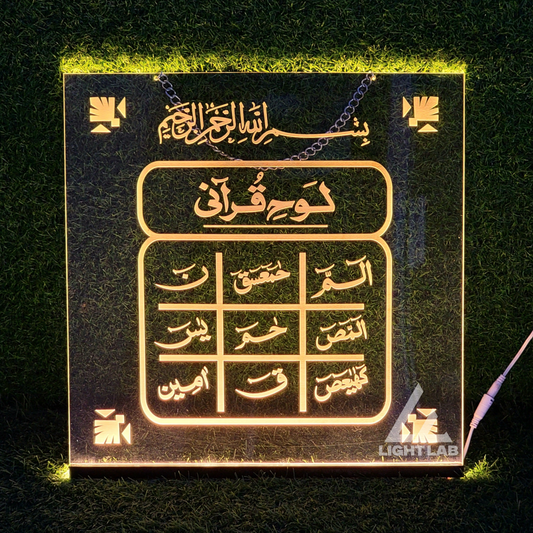 بسم الله الرحمن الرحيم
لوح قرآنی
الٓمّ حمعسق ن
المص حم یس
کھیعص ق اٰمین
LIGHT LAB